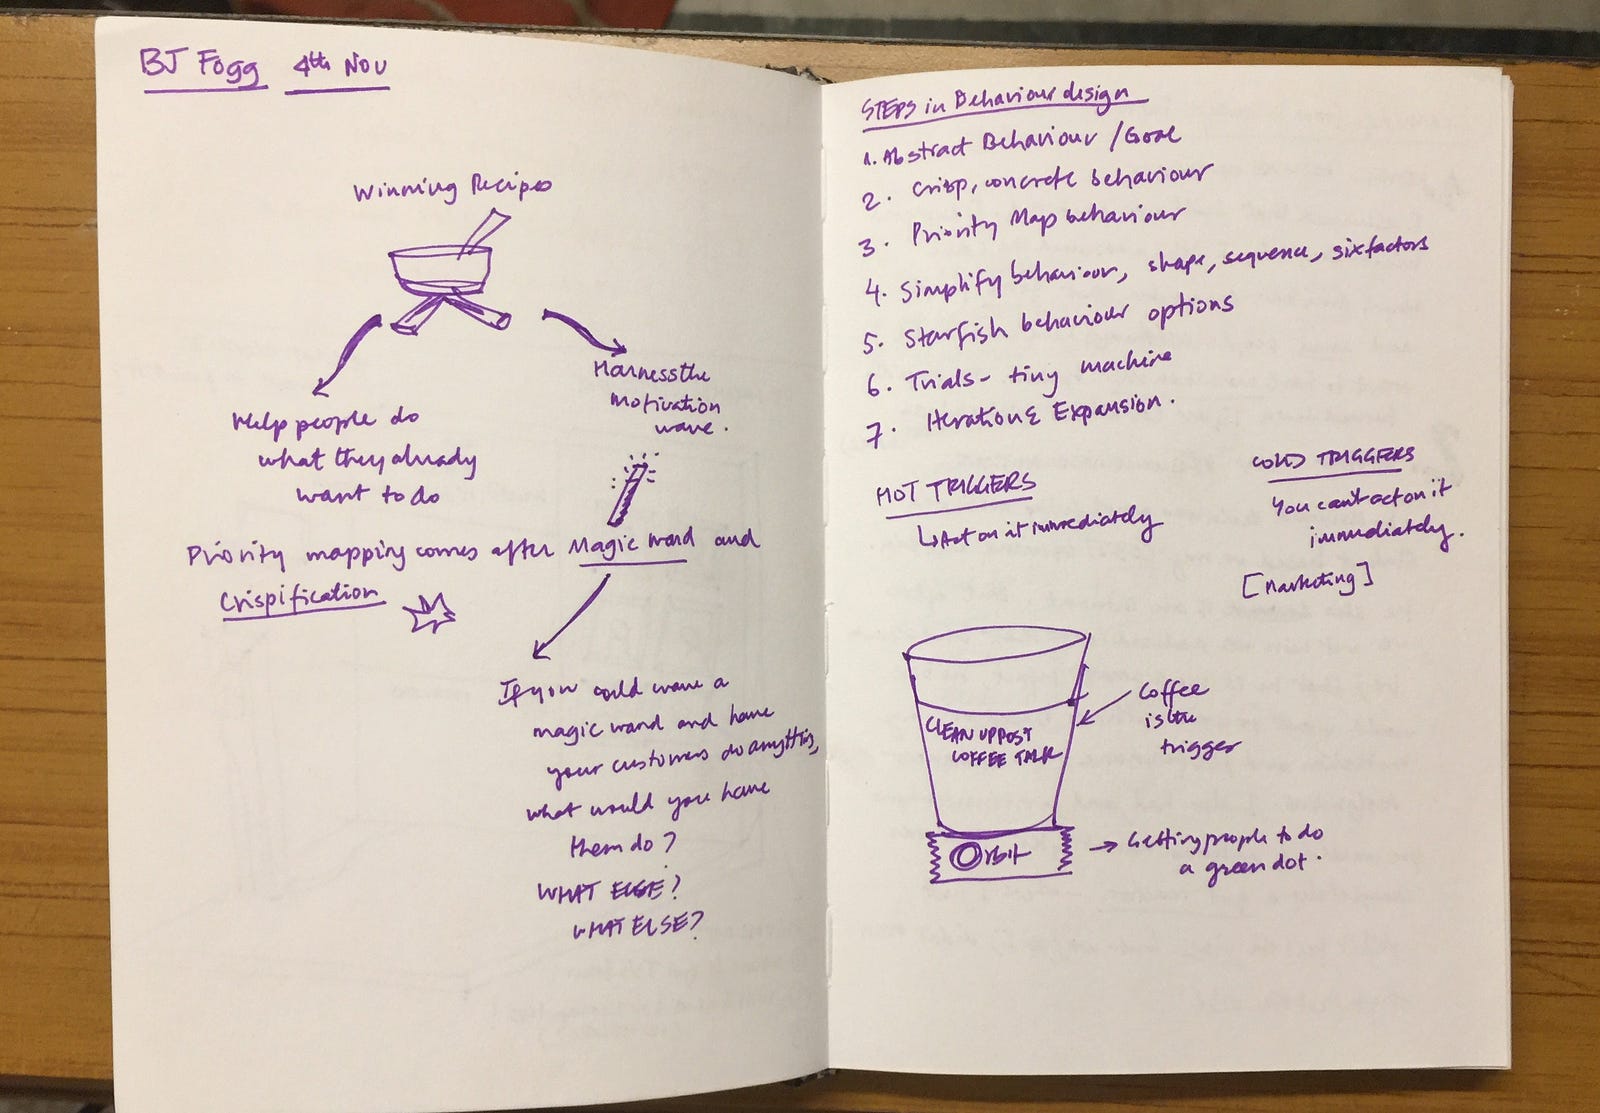 BJ Fogg 4th Nov
Winning Recipes
Help people do
what they already
want to do
Harness the
motivation
wave.
Priority mapping comes after Magic wand and
Crispification
If you could wave a
magic wand and have
your customers do anything,
what would you have
them do?
WHAT ELSE?
WHAT ELSE?
STEPS in Behaviour design
1. Abstract Behaviour / Goal
2. Crisp, concrete behaviour
3. Priority Map behaviour
4. Simplify behaviour, shape, sequence, six factors
5. Starfish behaviour options
6. Trials - tiny machine
7. Iteration & Expansion.
HOT TRIGGERS
Act on it immediately
COLD TRIGGERS
You can't act on it
immediately.
[Marketing]
CLEAN UP POST
COFFEE TALK
Coffee
is the
trigger
Orbit
Getting people to do
a green dot.